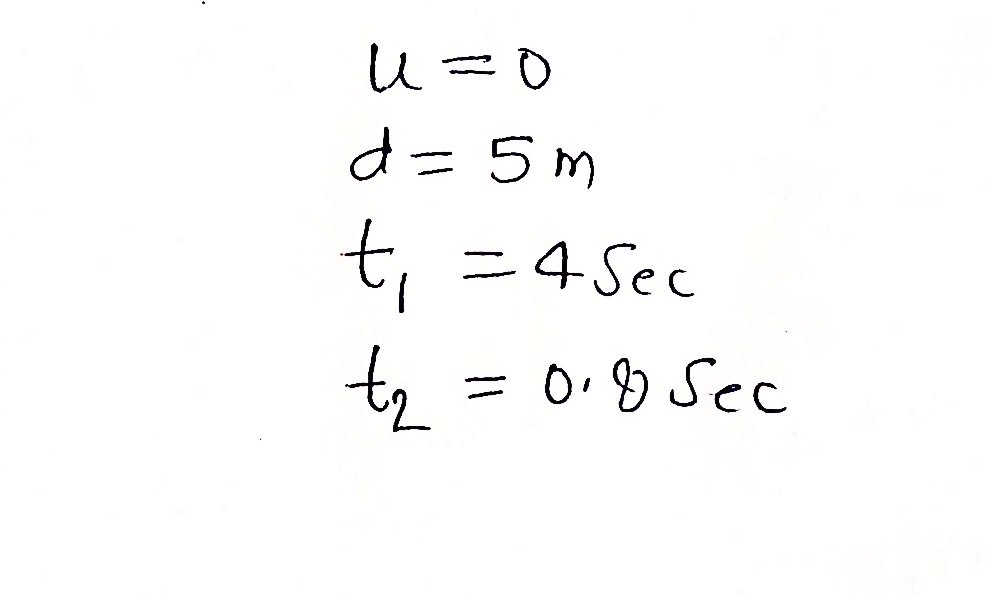 u = 0
d = 5 m
t₁ = 4 Sec
t₂ = 0.8 Sec